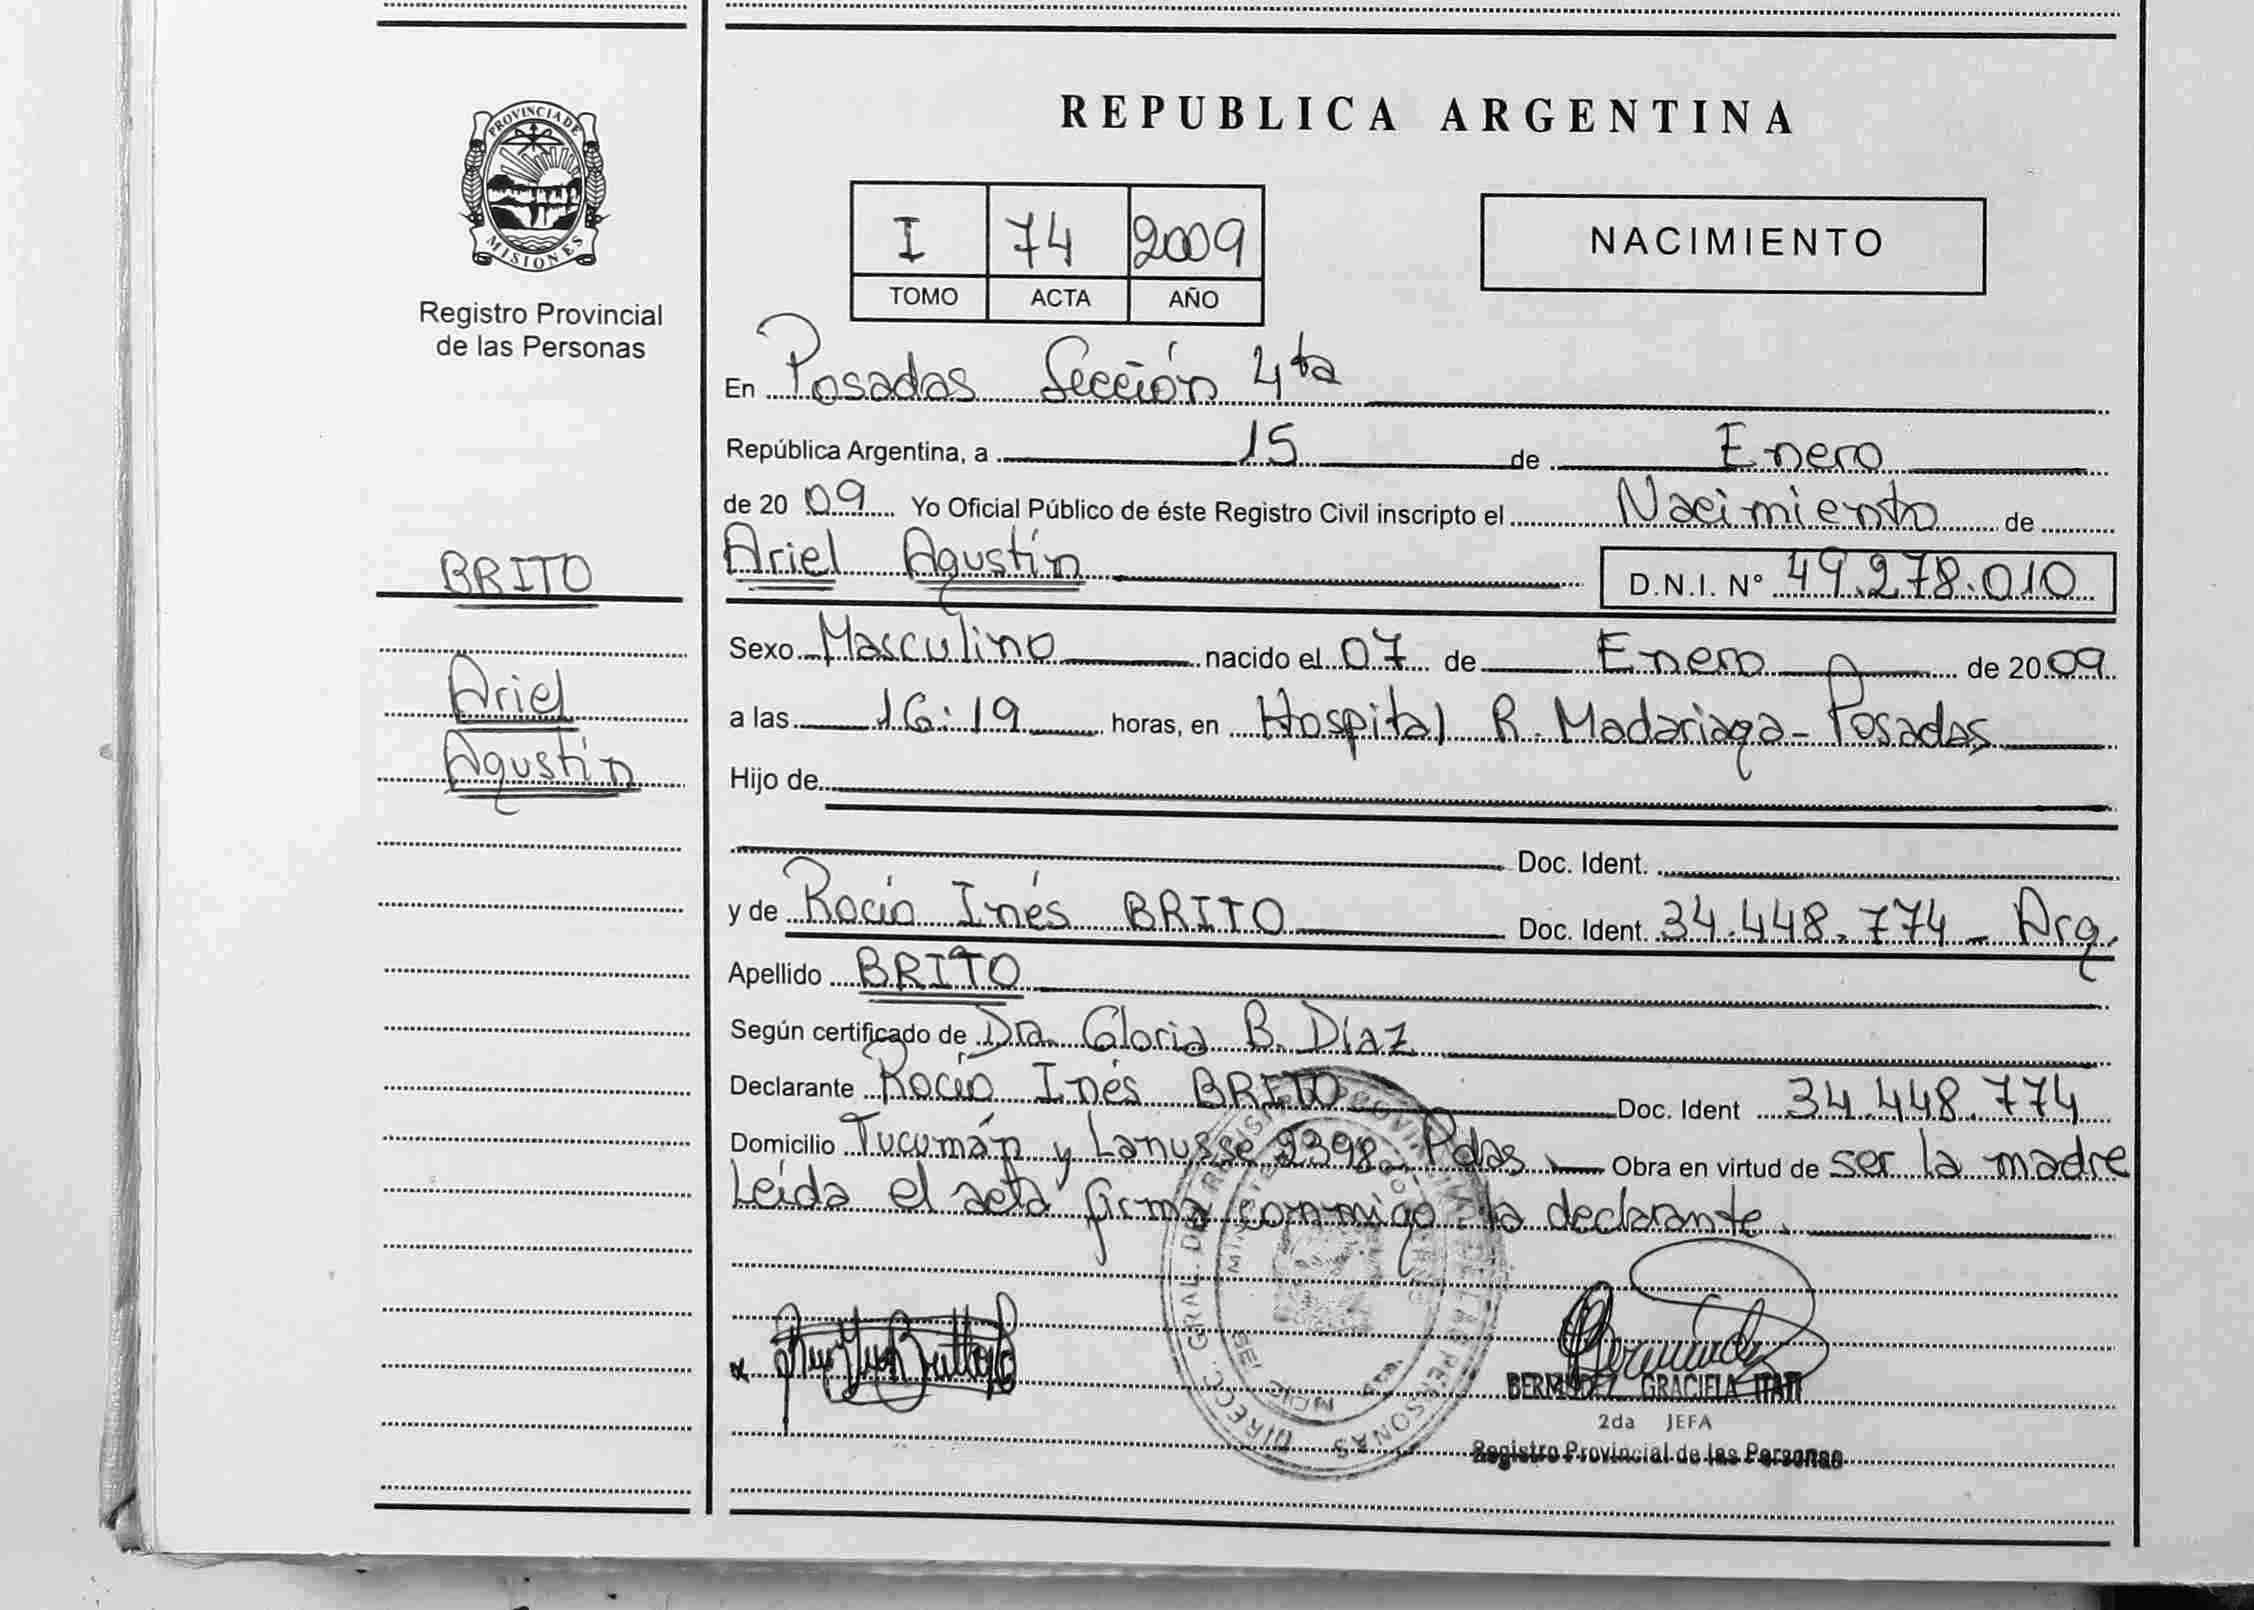 PROVINCIA DE
MISIONES
Registro Provincial
de las Personas
BRITO
Ariel
Agustín
REPUBLICA ARGENTINA
I 74 2009
TOMO ACTA AÑO
NACIMIENTO
En Posadas Sección 4ta
República Argentina, a 15 de Enero
de 2009 Yo Oficial Público de éste Registro Civil inscripto el Nacimiento de
Ariel Agustín D.N.I. N° 49.278.010
Sexo Masculino nacido el 07 de Enero de 2009
a las 16:19 horas, en Hospital R. Madariaga - Posadas
Hijo de
Doc. Ident.
y de Rocío Inés BRITO Doc. Ident. 34.448.774 - Arg.
Apellido BRITO
Según certificado de Dra. Gloria B. Díaz
Declarante Rocío Inés BRITO Doc. Ident 34.448.774
Domicilio Tucumán y Lanusse 2398 - Pdas Obra en virtud de ser la madre
Leída el acta firma conmigo la declarante.
DIREC. GRAL. DEL REGISTRO PROVINCIAL DE LAS PERSONAS
BERMUDEZ GRACIELA ITATI
2da JEFA
Registro Provincial de las Personas